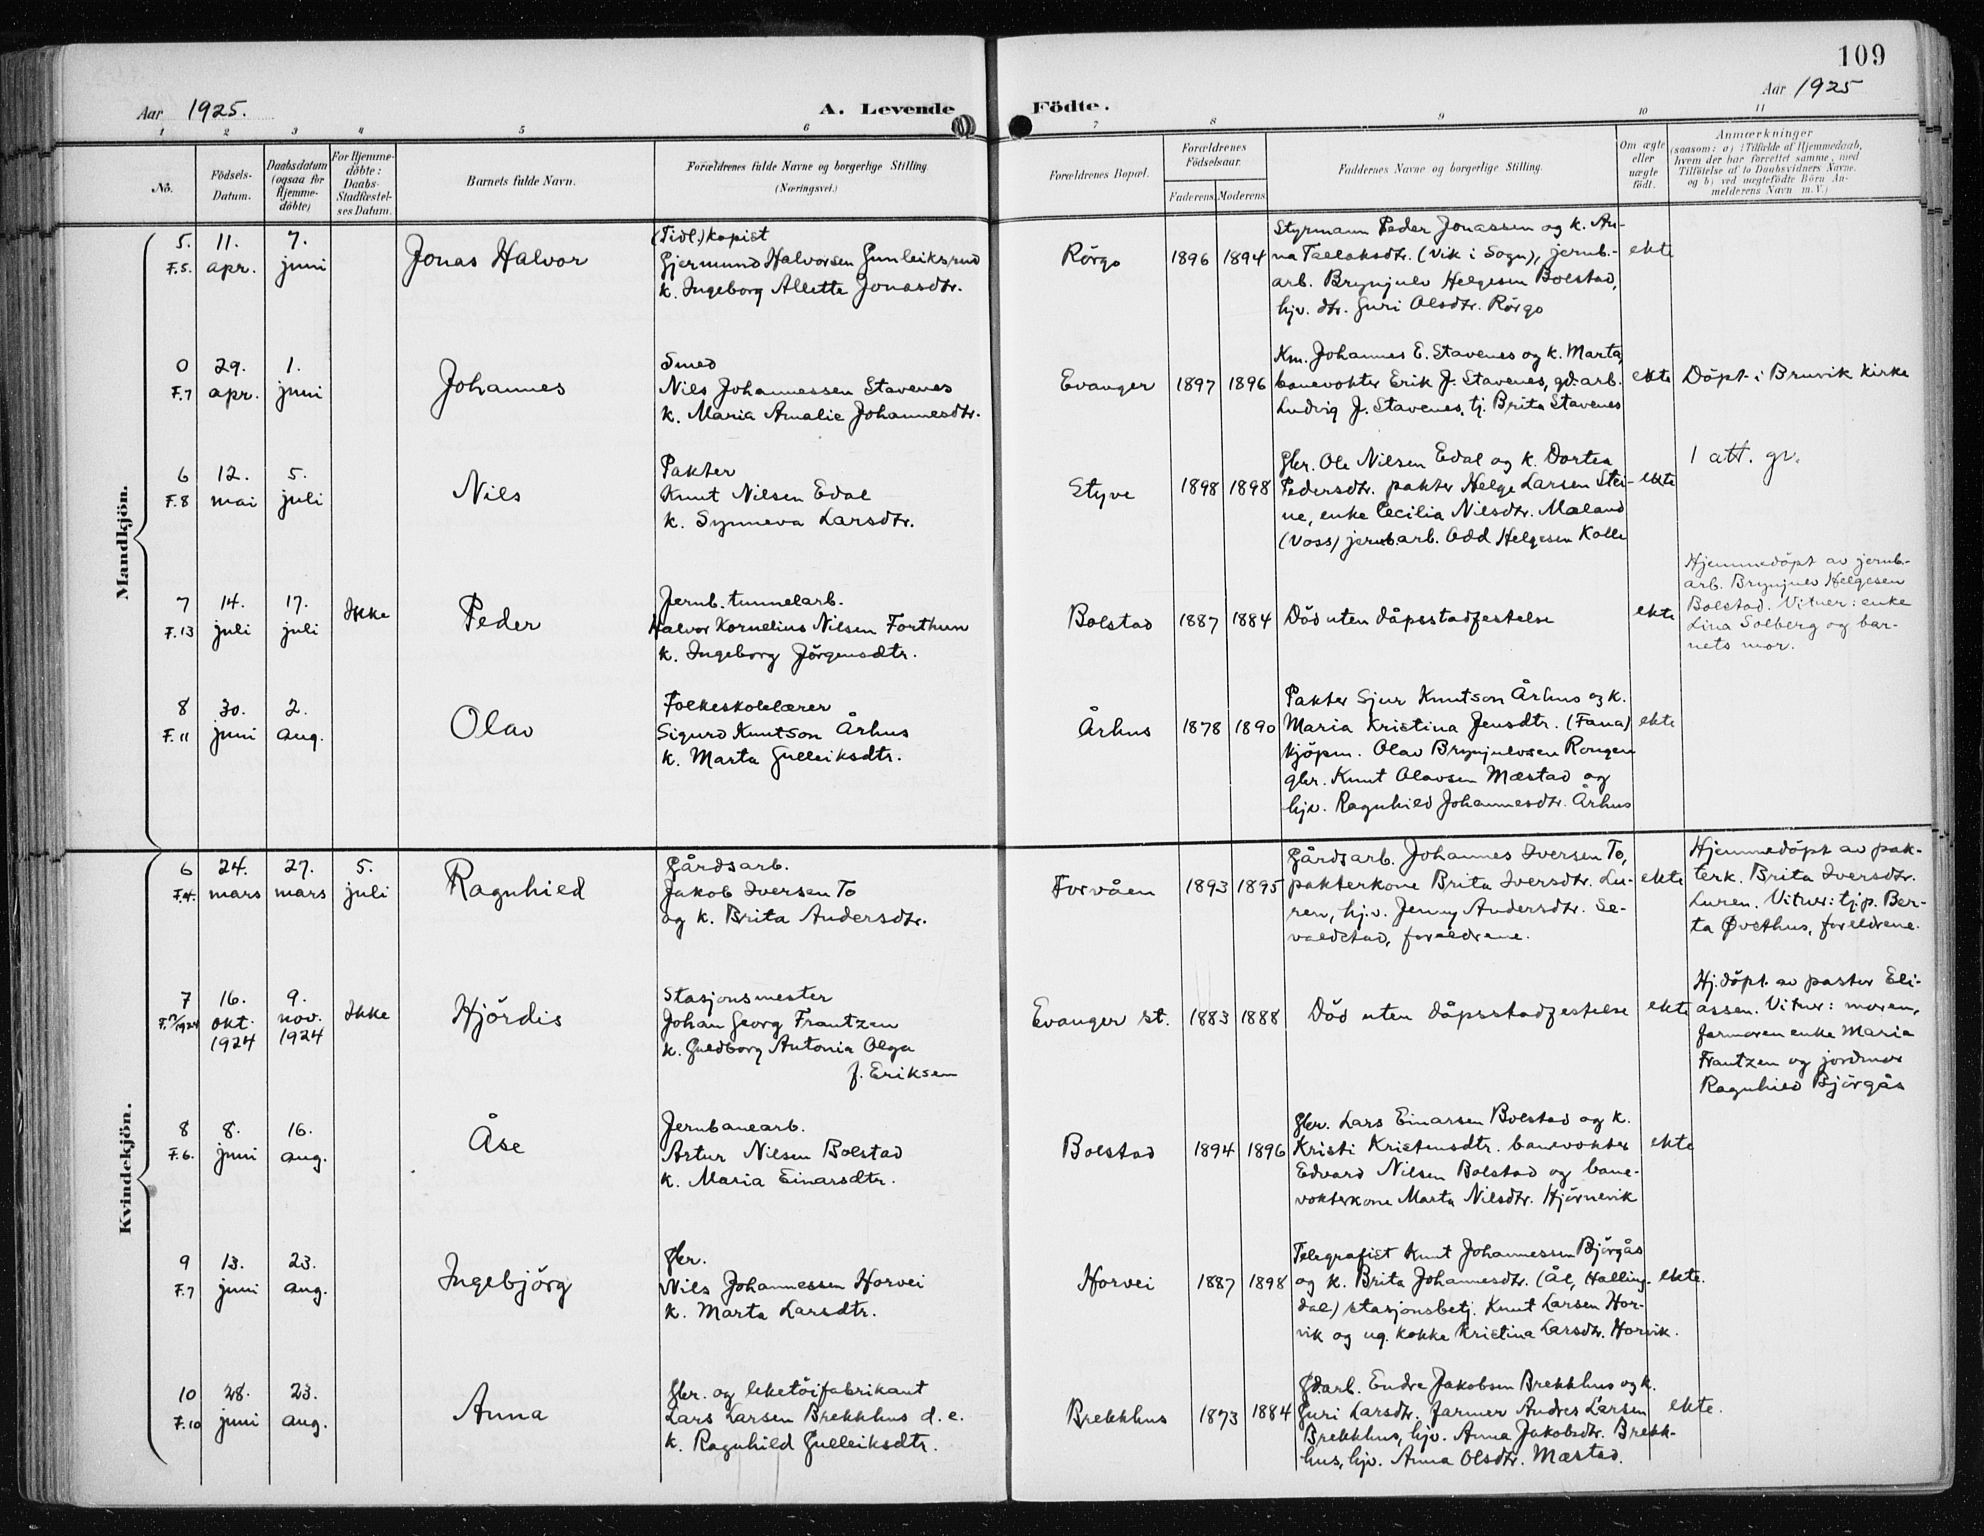 109
Aar 1925.
A. Levende
Födte.
Aar 1925
1 2 3 4 5 6 7 8 9 10 11
No.
Födsels-
Datum.
Daabsdatum
(ogsaa for
Hjemme-
döbte)
For Hjemme-
döbte:
Daabs-
Stadfæstel-
ses Datum.
Barnets fulde Navn.
Forældrenes fulde Navne og borgerlige Stilling.
(Næringsvei.)
Forældrenes Bopæl.
Forældrenes
Födselsaar.
Faderens. Moderens.
Faddernes Navne og borgerlige Stilling.
Om ægte
eller
uægte
födt.
Anmærkninger
(saasom: a) i Tilfælde af Hjemmedaab,
hvem der har forrettet samme, med
Tilföielse af to Daabsvidners Navne,
og b) ved uægtefödte Börn An-
melderens Navn m. V.)
Mandkjön.
5.
F.5.
11.
apr.
7.
juni
Jonas Halvor
(Tidl.) kopist
Gjermund Halvorsen Gunleiksrud
k. Ingeborg Alette Jonasdtr.
Rörgo
1896 1894
Styrmann Peder Jonassen og k. An-
na Tellaksdtr. (Vik i Sogn), jernb.-
arb. Brynjulv Helgesen Bolstad,
hjv. dtr. Guri Olsdtr. Rörgo
ekte
0
F.7
29.
apr.
1.
juni
Johannes
Smed
Nils Johannessen Stavenes
k. Maria Amalie Johannesdtr.
Evanger
1897 1896
Km. Johannes E. Stavenes og k. Marta,
banevokter Erik J. Stavenes, gd.arb.
Ludvig J. Stavenes, tj. Brita Stavenes
ekte
Döpt i Bruvik kirke
6
F.8
12.
mai
5.
juli
Nils
Pakter
Knut Nilsen Edal
k. Synneva Larsdtr.
Styve
1898 1898
Gbr. Ole Nilsen Edal og k. Dortea
Pedersdtr. pakter Helge Larsen Stei-
ne, enke Cecilia Nilsdtr. Mæland
(Voss) jernb.arb. Odd Helgesen Kolle
ekte
1 att. gr.
7
F.13
14.
juli
17.
juli
Ikke
Peder
Jernb. tunnelarb.
Halvor Kornelius Nilsen Forthun
k. Ingeborg Jörgensdtr.
Bolstad
1887 1884
Död uten dåpsstadfestelse
ekte
Hjemmedöpt av jernb.-
arb. Brynjulv Helgesen
Bolstad. Vitner: enke
Lina Solberg og bar-
nets mor.
8
F.11
30.
juni
2.
aug.
Olav
Folkeskolelærer
Sigurd Knutson Århus
k. Marta Gulleiksdtr.
Århus
1878 1890
Pakter Sjur Knutson Århus og k.
Maria Kristina Jensdtr. (Fana)
kjöpm. Olav Brynjulvsen Rongen
gbr. Knut Olavsen Mæstad og
hjv. Ragnhild Johannesdtr. Århus
ekte
Kvindekjön.
6
F.4.
24.
mars
27.
mars
5.
juli
Ragnhild
Gårdsarb.
Jakob Iversen To
og k. Brita Andersdtr.
Forvåen
1893 1895
Gårdsarb. Johannes Iversen To,
pakterkone Brita Iversdtr. Lu-
ren, hj.v. Jenny Andersdtr. Se-
valdstad, foreldrene.
ekte
Hjemmedöpt av pak-
terk. Brita Iversdtr.
Luren. Vitner: tj.p. Ber-
ta Øvsthus, foreldrene.
7
16.
okt.
1924
9.
nov.
1924
Ikke
Hjördis
Stasjonsmester
Johan Georg Frantzen
k. Guldborg Antonia Olga
f. Eriksen
Evanger st.
1883 1888
Död uten dåpsstadfestelse
ekte
Hj.döpt av pastor Eli-
assen. Vitner: moren,
farmoren enke Maria
Frantzen og jordmor
Ragnhild Björgås
8
F.6.
8.
juni
16.
aug.
Åse
Jernbanearb.
Artur Nilsen Bolstad
k. Maria Einarsdtr.
Bolstad
1894 1896
Gbr. Lars Einarsen Bolstad og k.
Kristi Kristensdtr. banevokter
Edvard Nilsen Bolstad og bane-
vokterkone Marta Nilsdtr. Hjörnevik
ekte
9
F.7
13.
juni
23.
aug.
Ingebjörg
Gbr.
Nils Johannessen Horvei
k. Marta Larsdtr.
Horvei
1887 1898
Telegrafist Knut Johannessen Björgås
og k. Brita Johannesdtr. (Ål, Halling-
dal) stasjonsbetj. Knut Larsen Hor-
vik og ug. kokke Kristina Larsdtr. Horvik.
ekte.
10
F.10
28.
juni
23.
aug.
Anna
Gbr. og leketöifabrikant
Lars Larsen Brekkhus d. e.
k. Ragnhild Gulleiksdtr.
Brekkhus
1873 1884
Gd.arb. Endre Jakobsen Brekkhus og k.
Guri Larsdtr. farmer Andres Larsen
Brekkhus, hjv. Anna Jakobsdtr. Brekk-
hus, hjv. Anna Olsdtr. Mæstad.
ekte.